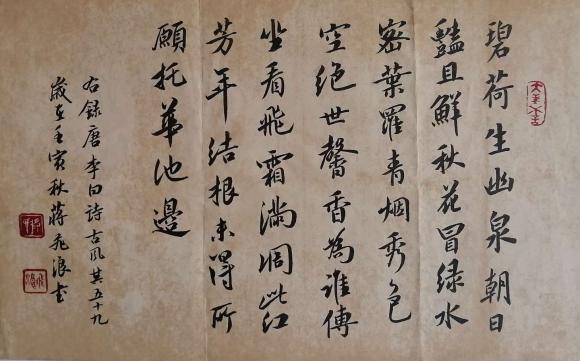 碧荷生幽泉朝日
豔且鮮秋花冒綠水
密葉羅青烟秀色
空絕世馨香為誰傳
坐看飛霜滿凋此紅
芳年結根未得所
願托華池邊
右錄唐李白詩古風其五十九
歲在壬寅秋蔣飛浪書